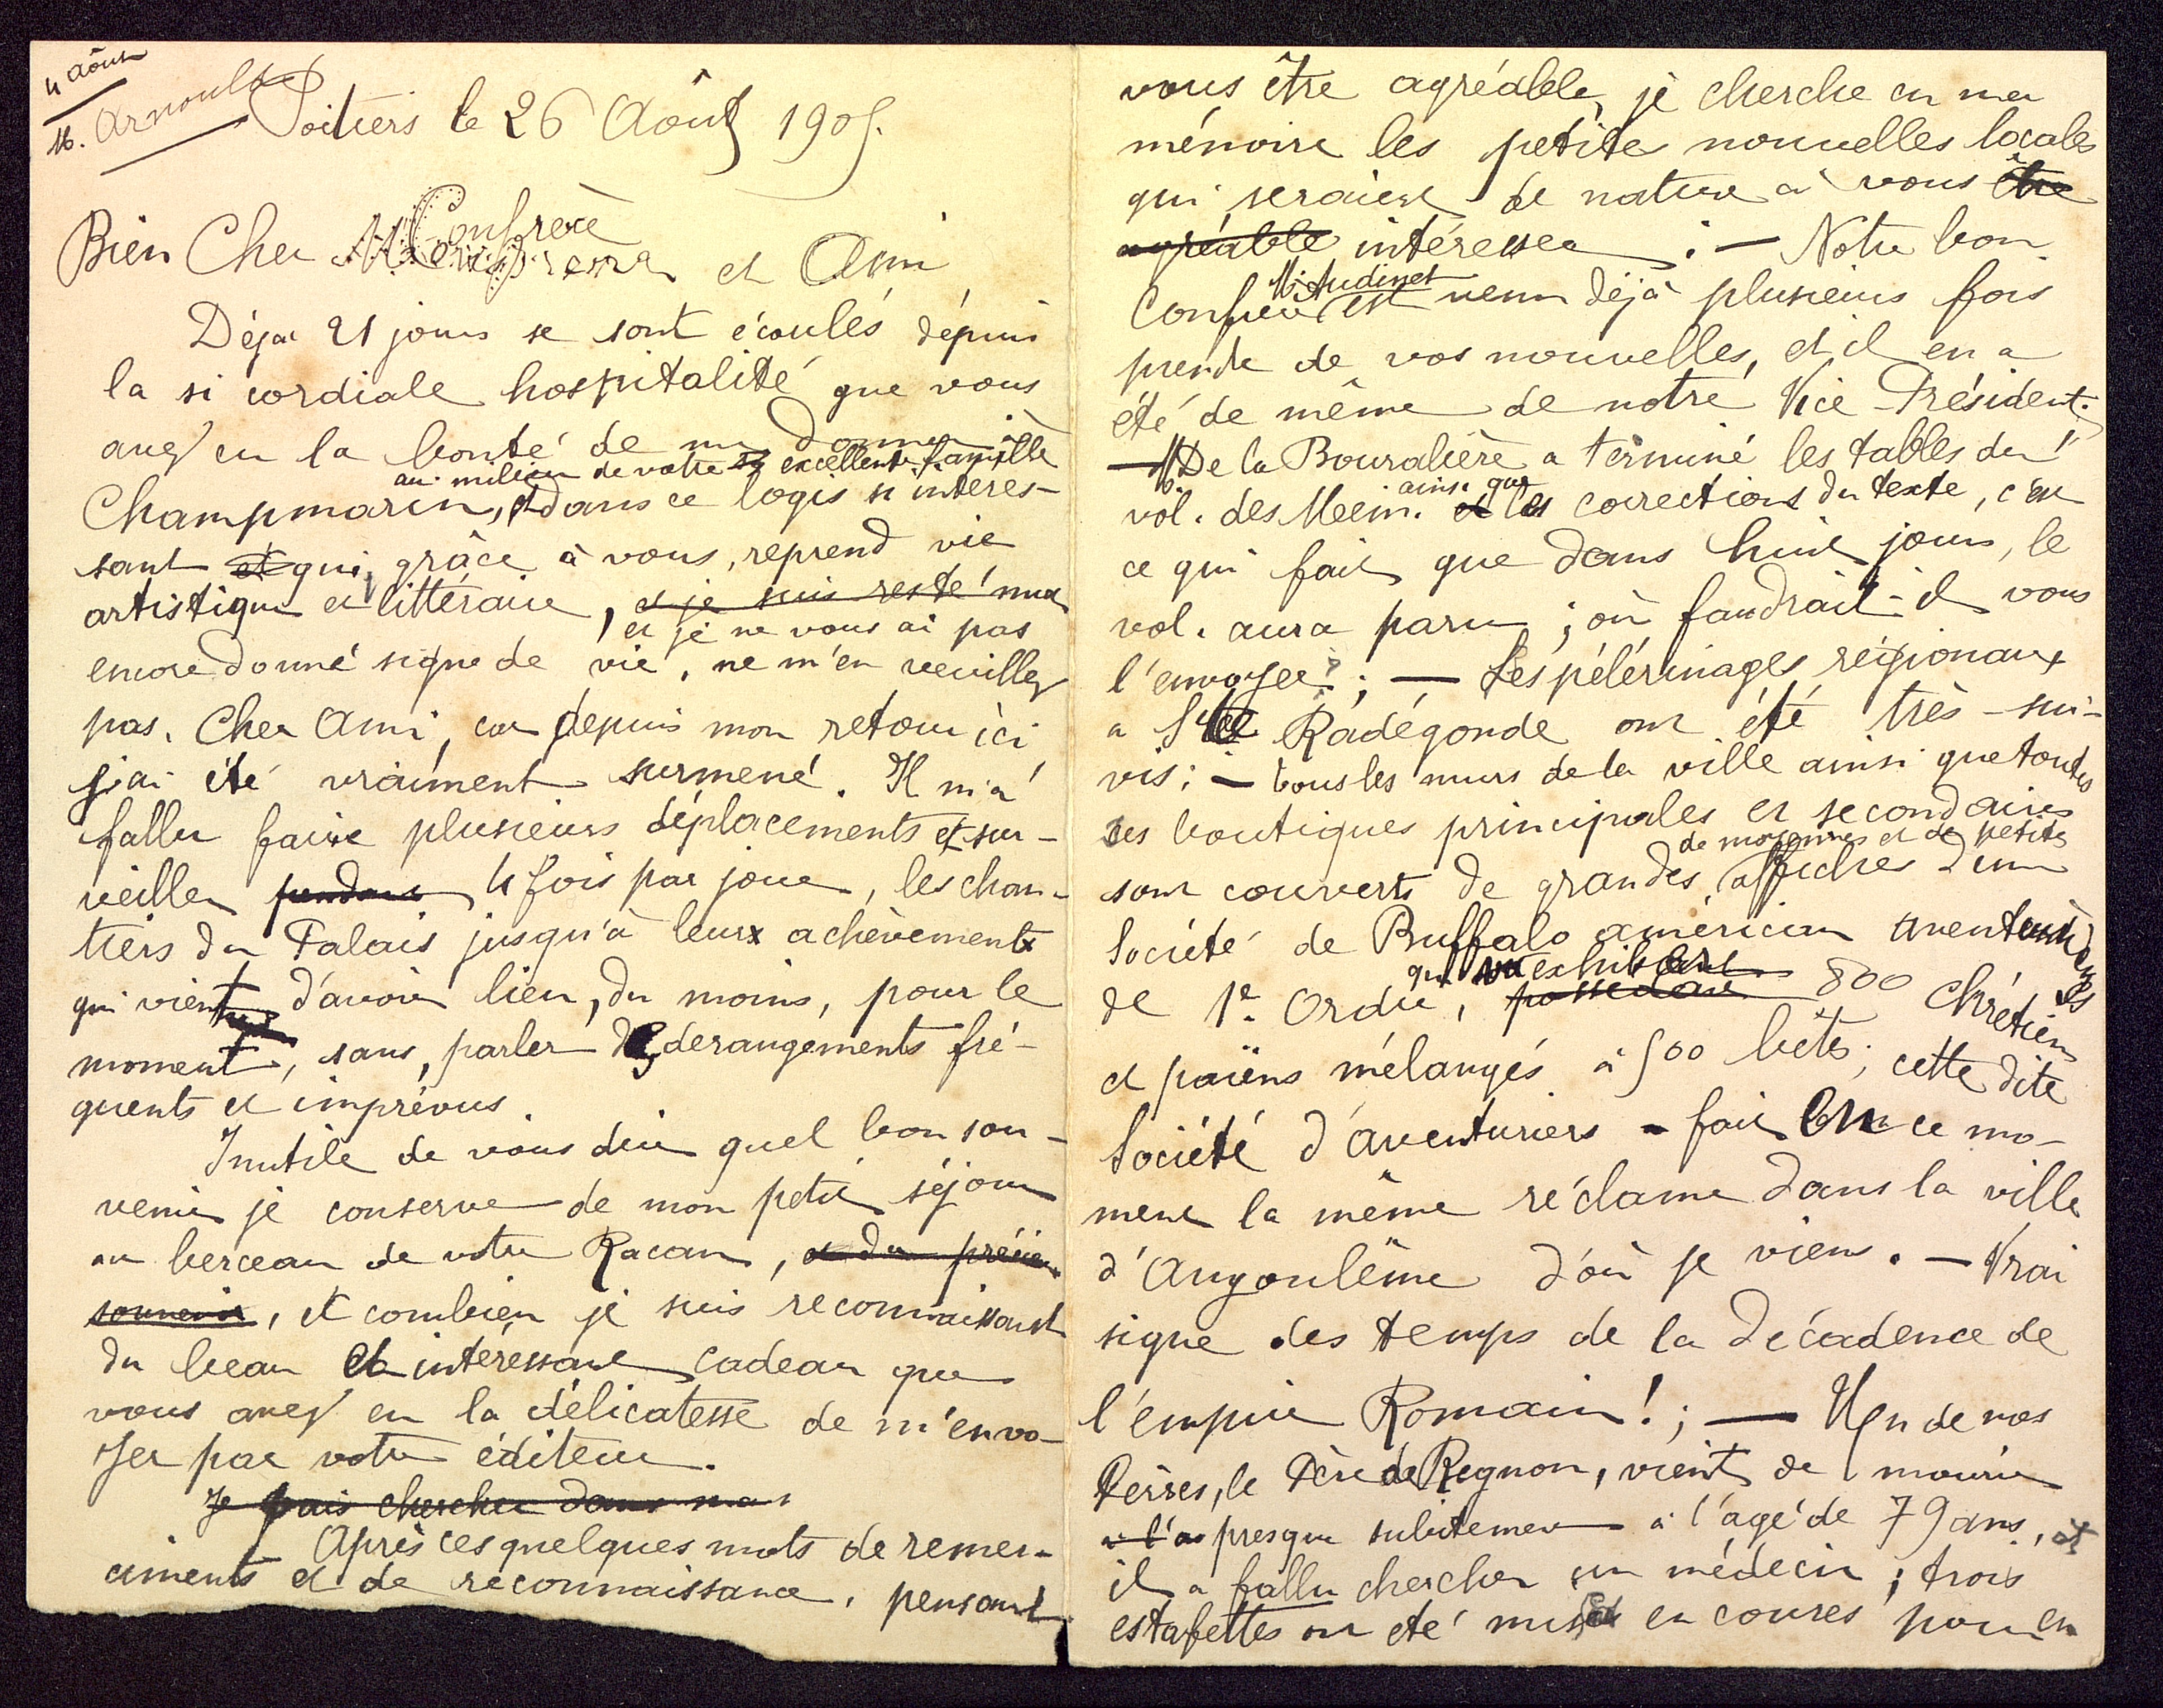 4 Août
M. Arnould
Poitiers le 26 Août 1905.
Bien Cher Confrère et Ami
Déja 21 jours se sont écoulés dépuis
la si cordiale hospitalité que vous
avez eu la bonté de me donner à
au milieu de votre si excellente famille
Champmarin, et dans ce logis si intéres-
sant et qui, grâce à vous, reprend vie
artistique et littéraire, et je suis resté muet
et je ne vous ai pas
encore donné signe de vie, ne m'en veuillez
pas, Cher Ami, car depuis mon retour ici
j'ai été vraiment surmené. Il m'a
fallu faire plusieurs déplacements et sur-
veiller pendant 4 fois par jour, les chan-
tiers du Palais jusqu'à leurs achèvements
qui vient d'avoir lieu, du moins, pour le
moment, sans parler de derangéments fré-
quents et imprévus.
Inutile de vous dire quel bon sou-
venir je conserve de mon petit séjour
au berceau de votre Racan, et du précieux
souvenir, et combien je suis reconnaissant
du beau et intéressant cadeau que
vous avez eu la délicatesse de m'envo-
yer par votre éditeur.
Je puis chercher dans ma
Après ces quelques mots de remer-
ciments et de reconnaissance, pensant
vous être agréable, je cherche en ma
mémoire les petites nouvelles locales
qui seraient de nature à vous être
agréable intéresser : — Notre bon
M. Audinet
Confrère est venu déjà plusieurs fois
prendre de vos nouvelles, et il en a
été de même de notre Vice-Président.
— M. De la Bouralière a terminé les tables du
vol. des Mém. et les corrections du texte, c'est
ainsi que
ce qui fait que dans huit jours, le
vol. aura paru ; où faudrait-il vous
l'envoyer? ; — Les pélérinages régionaux
a Ste Radégonde ont été très-sui-
vis ; — tous les murs de la ville ainsi que toutes
les boutiques principales et secondaires
de moyennes et de petites
sont couverts de grandes, affiches d'une
Société de Buffalo américain
de 1e. Ordre, possédant 800 Chrétiens
qui exhibent
et païens mélangés à 500 bêtes ; cette dite
Société d'aventuriers fait en ce mo-
ment la même réclame dans la ville
d'Angoulême d'où je viens. — Vrai
signe des temps de la décadence de
l'empire Romain! ; — Un de nos
Pères, le Père de Regnon, vient de mourir
à l'a presque subitement à l'agé de 79 ans, et
il a fallu chercher un médecin ; trois
estafettes ont eté mises en courses pour en